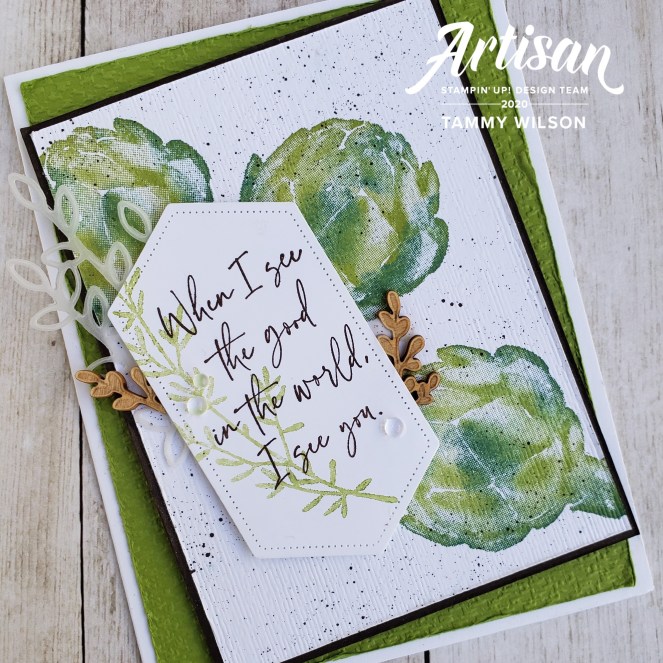 Artisan
STAMPIN' UP! DESIGN TEAM
2020
TAMMY WILSON
When I see
the good
in the world,
I see you.